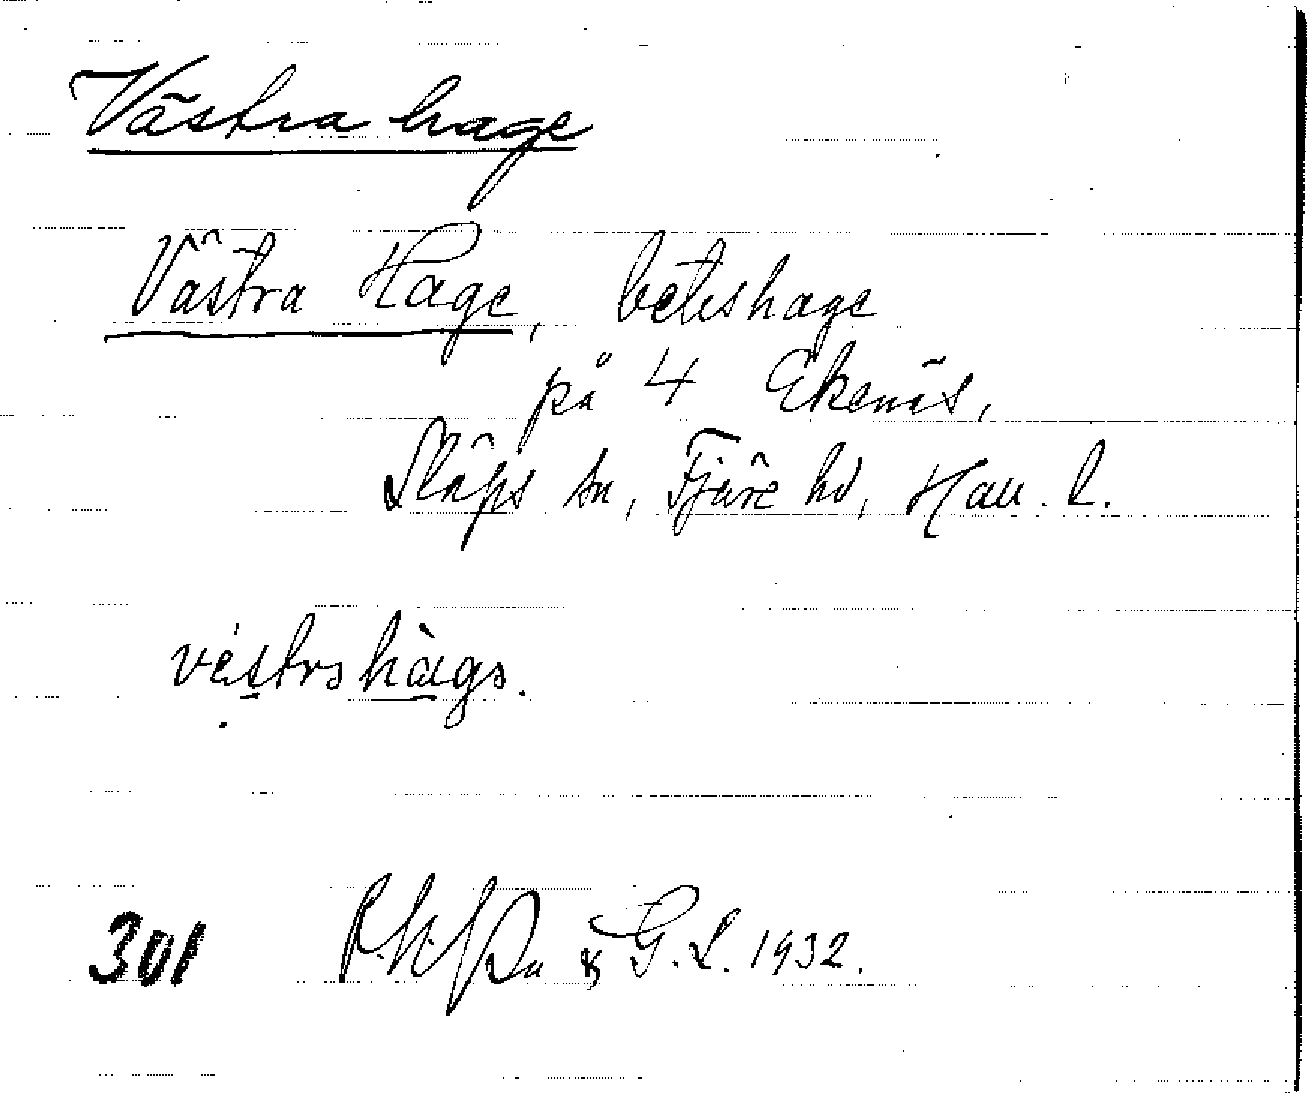 Västra hage
Västra Hage, beteshage
på 4 Ekenäs,
Släps sn, Fjäre hd, Hall. l.
véstrs hàgs.
301 & G. L. 1932.